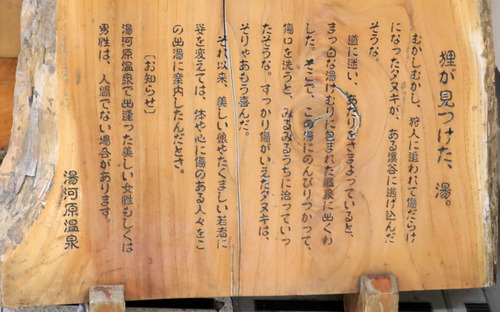 狸が見つけた、湯。
むかしむかし、狩人に追われて傷だらけ
になったタヌキが、ある渓谷に逃げ込んだ
そうな。
道に迷い、あたりをさまよっていると、
まっ白な湯けむりに包まれた温泉に出くわ
した。そこで、この湯にのんびりつかって、
傷口を洗うと、みるみるうちに治っていっ
たそうな。すっかり傷がいえたタヌキは、
そりゃあもう喜んだ。
それ以来、美しい娘やたくましい若者に
姿を変えては、体や心に傷のある人々をこ
の出湯に案内したんだとさ。
〔お知らせ〕
湯河原温泉で出逢った美しい女性もしくは
男性は、人間でない場合があります。
湯河原温泉